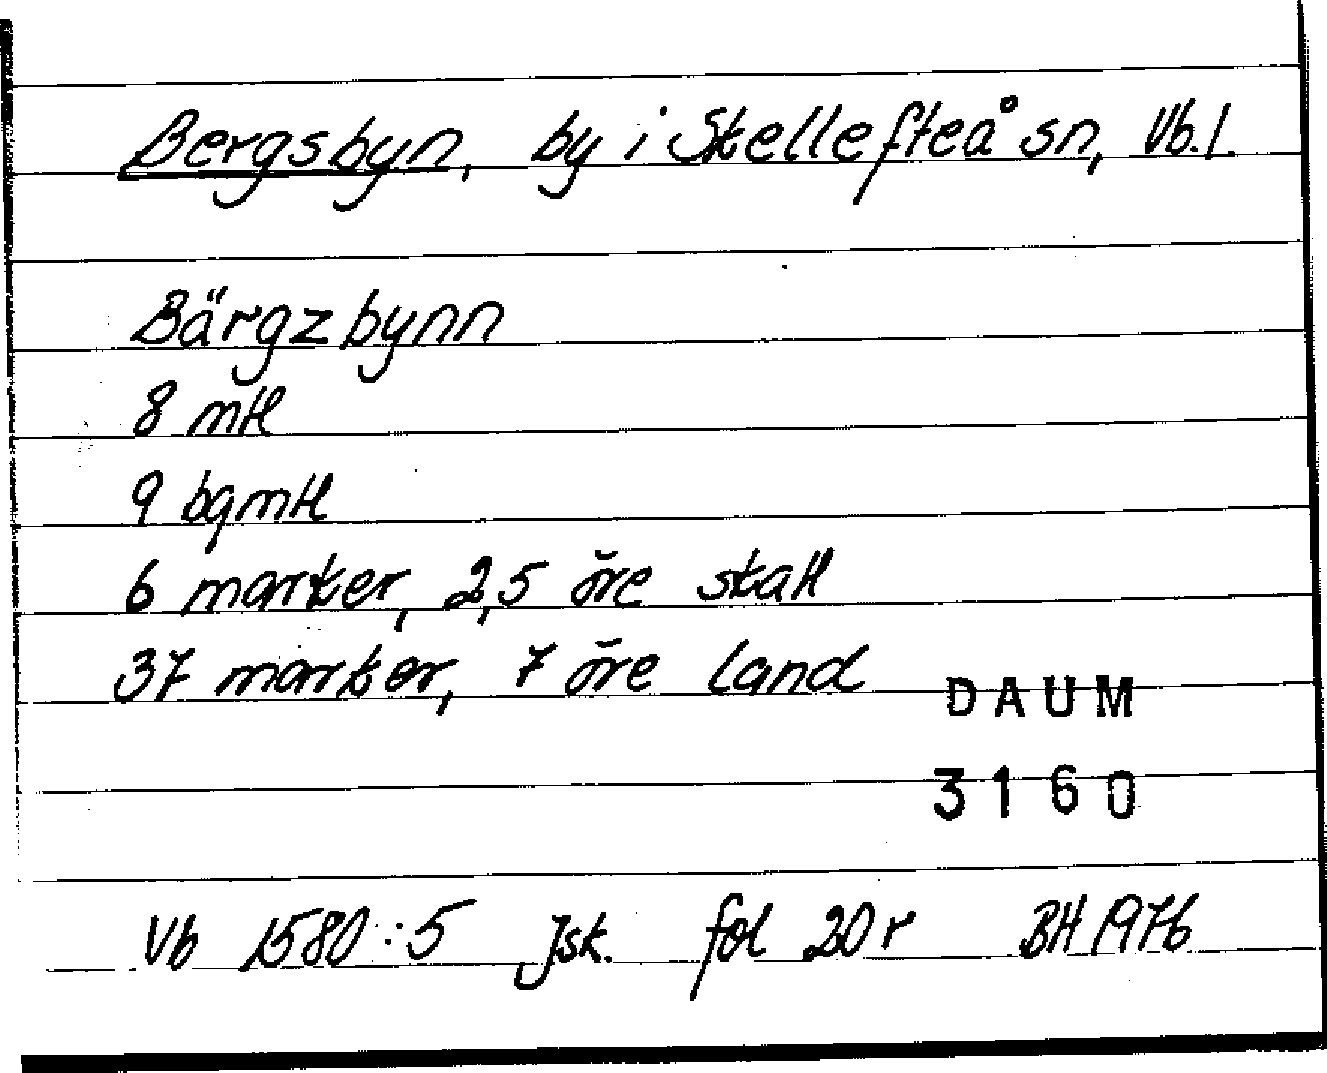 Bergsbyn, by i Skellefteå sn, Vb.l.
Bärgzbynn
8 mtl
9 bgmtl
6 marker, 2,5 öre skatt
37 marker, 7 öre land
DAUM
3160
Vb 1580:5 Jsk. fol 20 r BH 1976